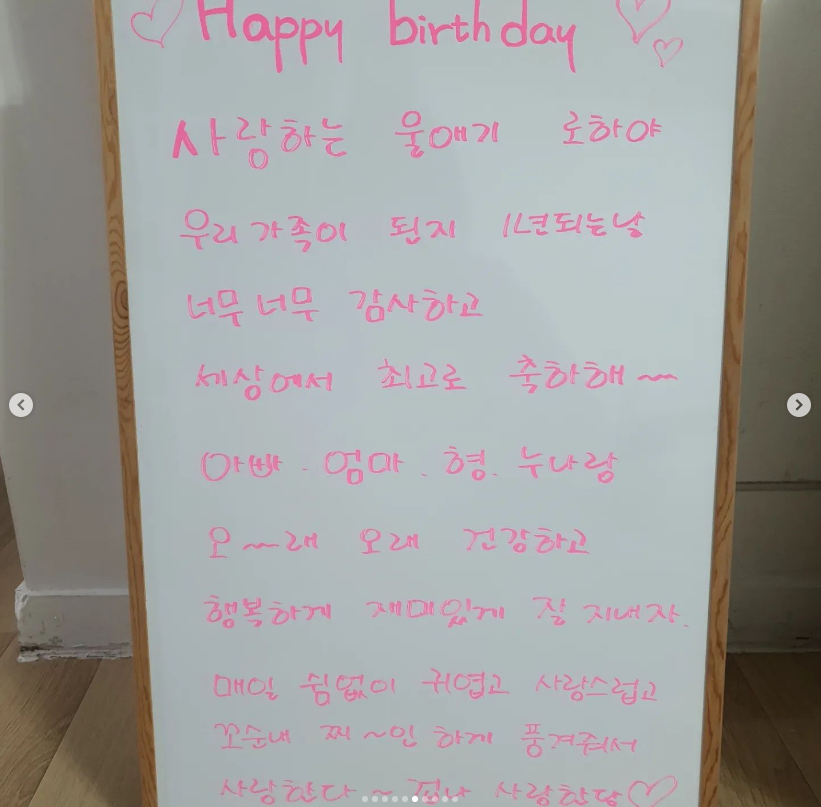 Happy birthday
사랑하는 울애기 로하야
우리가족이 된지 1년되는날
너무너무 감사하고
세상에서 최고로 축하해~~
아빠. 엄마. 형. 누나랑
오~~래 오래 건강하고
행복하게 재미있게 잘 지내자.
매일 쉼없이 귀엽고 사랑스럽고
꼬순내 찌~인 하게 풍겨줘서
사랑한다~ 사랑한당♡